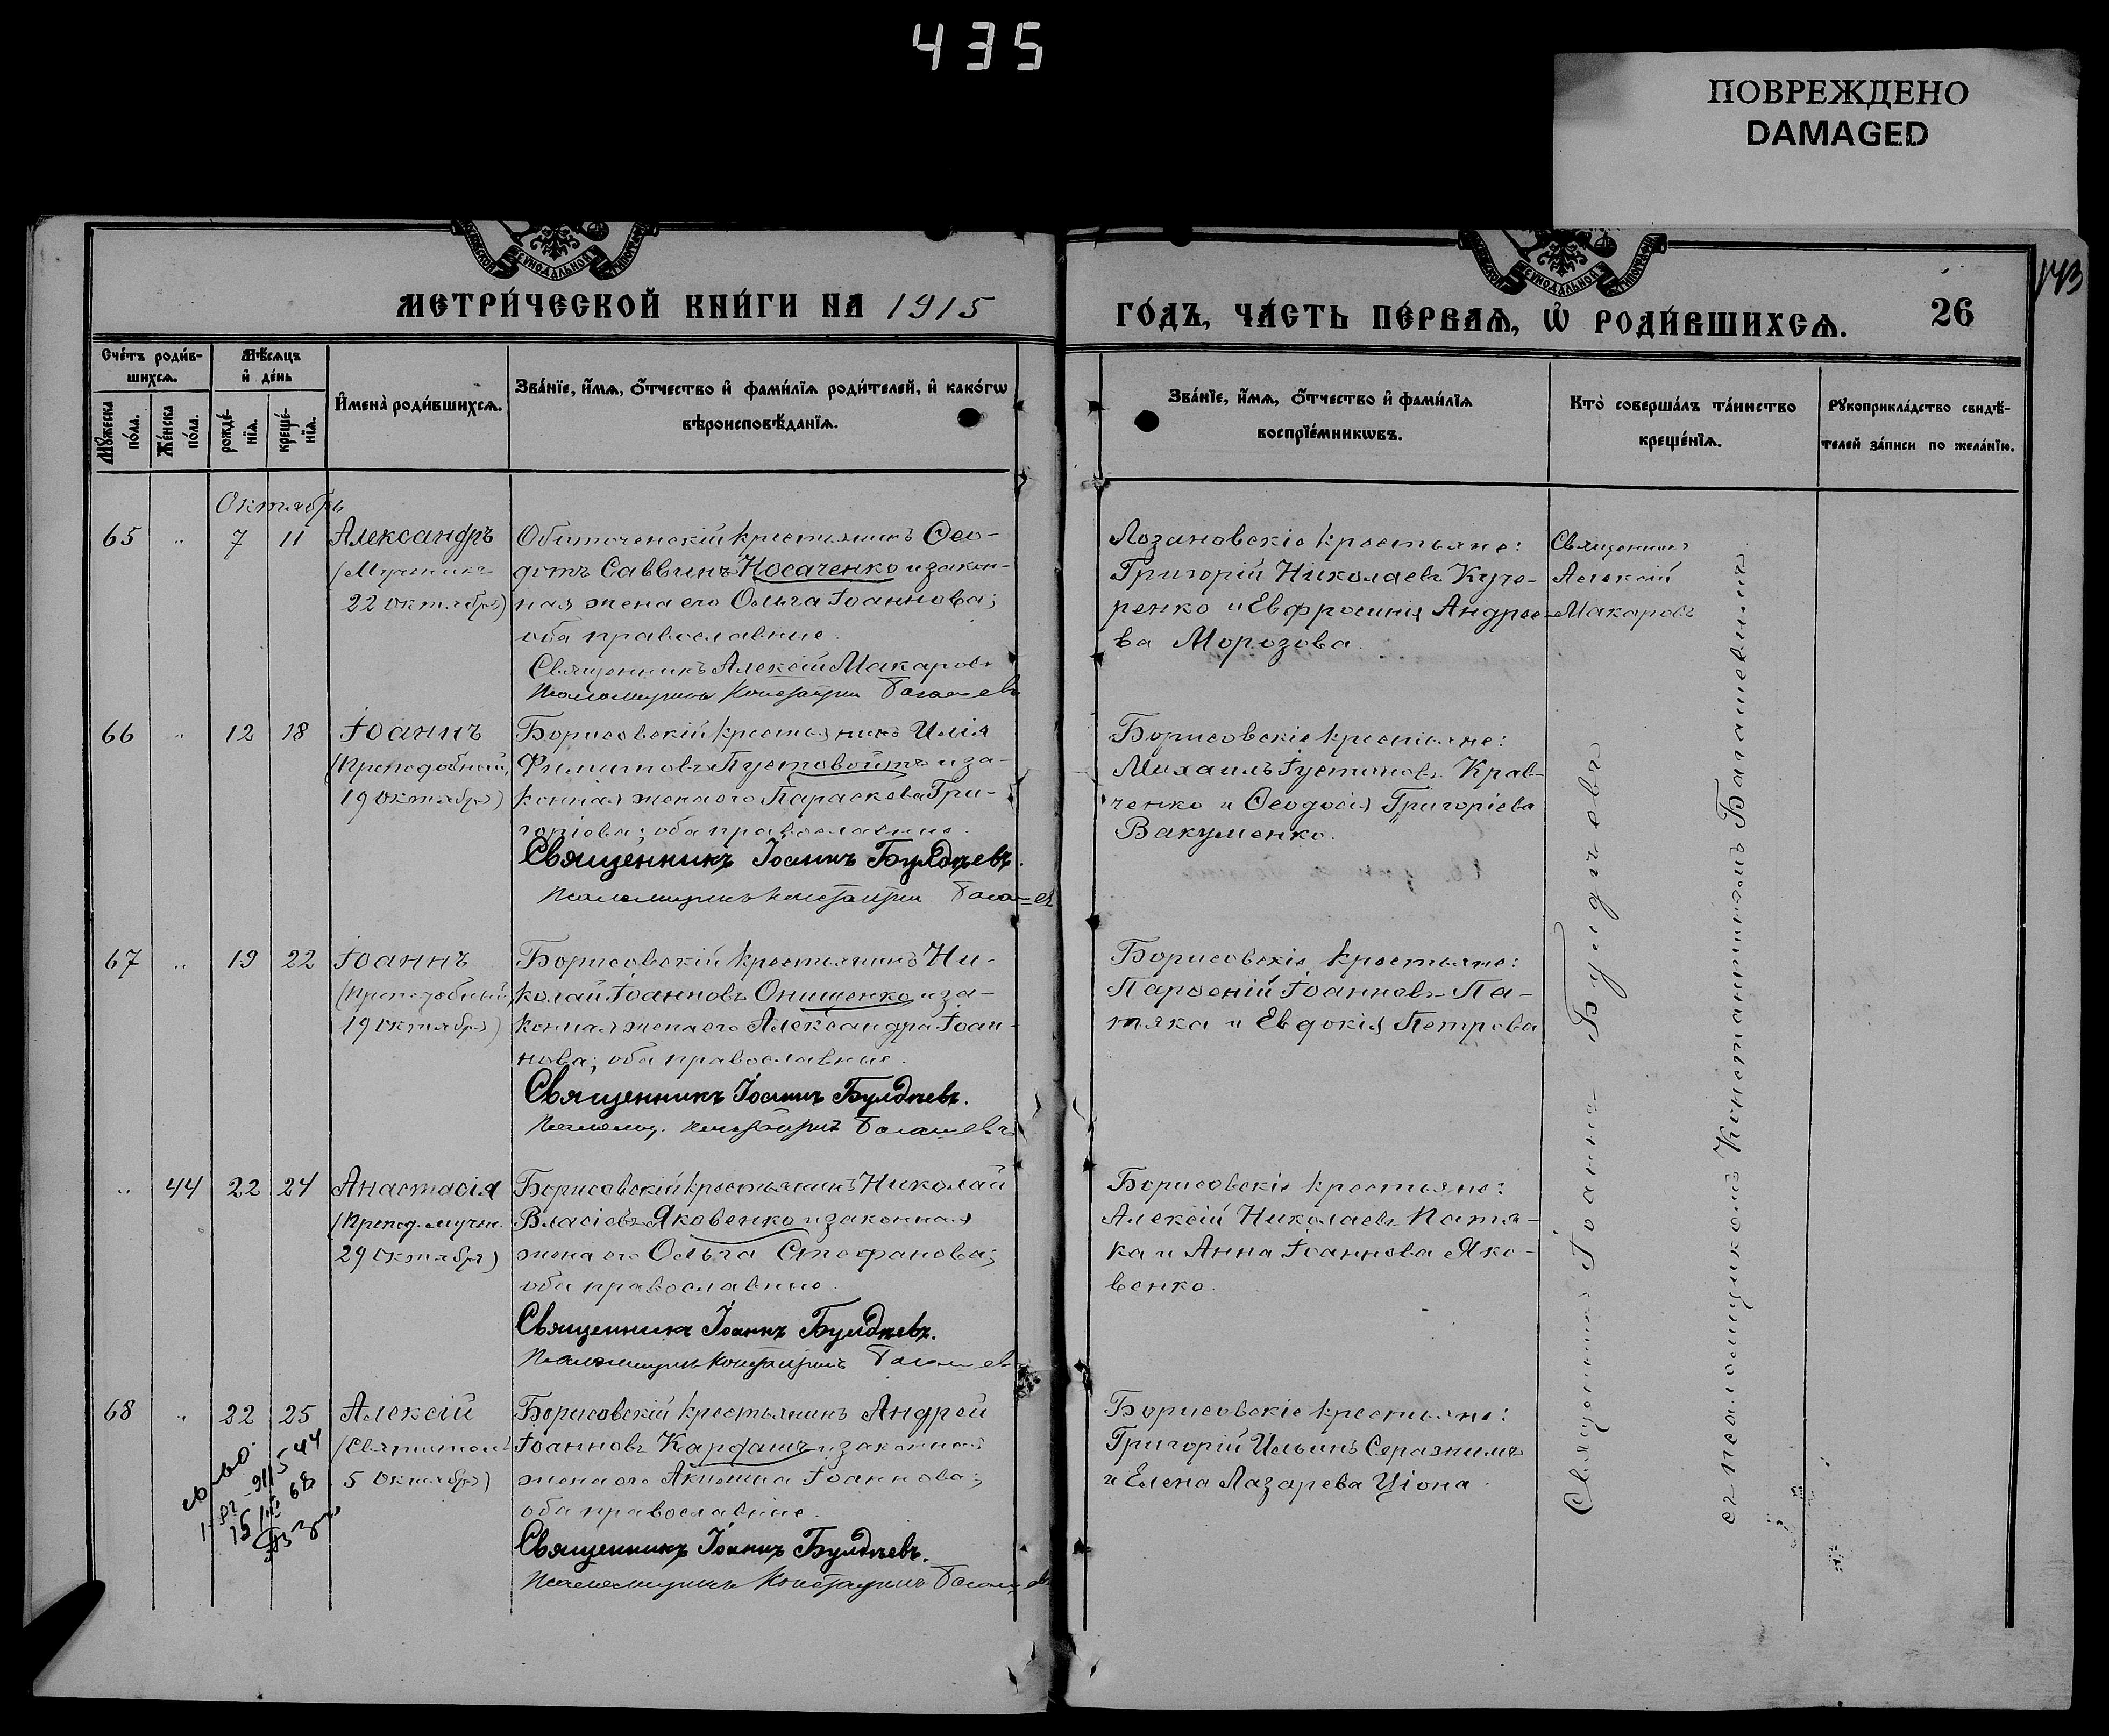 435
ПОВРЕЖДЕНО
DAMAGED
МЕТРИ́ЧЕСКОЙ КНИ́ГИ НА 1915
ГО́ДЪ, ЧА́СТЬ ПЕ́РВАѦ, Ѡ҆ РОДИ́ВШИХСѦ.
26
Сче́тъ роди́в-
шихсѧ.
Мѣ́сѧцъ
и҆ де́нь
Мꙋ́жеска
по́ла.
Же́нска
по́ла.
рожде́-
нїѧ.
креще́-
нїѧ.
И҆мена̀ роди́вшихсѧ.
Зва́нїе, и҆́мѧ, ѻ҆́тчество и҆ фами́лїѧ роди́телей, и҆ како́гѡ
вѣроисповѣ́данїѧ.
Зва́нїе, и҆́мѧ, ѻ҆́тчество и҆ фами́лїѧ
воспрїе́мникѡвъ.
Кто̀ соверша́лъ та́инство
креще́нїѧ.
Рꙋкоприкла́дство свидѣ́-
телей за́писи по жела́нїю.
Октябрь
65 " 7 11 Александръ
(Мученика
22 октября)
Обиточенскій крестьянинъ Ѳео-
дотъ Саввинъ Носаченко и закон-
ная жена его Ольга Іоаннова;
оба православные.
Священникъ Алексій Макаровъ
Псаломщикъ Константинъ
Лозановскіе крестьяне:
Григорій Николаевъ Куче-
ренко и Евфросинія Андрее-
ва Морозова.
Священникъ
Алексій
Макаровъ
66 " 12 18 Іоаннъ
(Преподобный,
19 октября)
Борисовскій крестьянинъ Илія
Филиповъ Пустовойтъ и за-
конная жена его Параскева Гри-
горіева; оба православные.
Священникъ Іоаннъ Булдчевъ.
Псаломщикъ Константинъ
Борисовскіе крестьяне:
Михаилъ Іустиновъ Крав-
ченко и Ѳеодосія Григоріева
Вакуменко.
67 " 19 22 Іоаннъ
(Преподобный
19 октября)
Борисовскій крестьянинъ Ни-
колай Іоанновъ Онищенко и за-
конная жена его Александра Іоан-
нова; оба православные.
Священникъ Іоаннъ Булдчевъ.
Псаломщ. Константинъ Багашевъ
Борисовскіе крестьяне:
Парѳеній Іоанновъ Па-
тяка и Евдокія Петрова
" 44 22 24 Анастасія
(Препод. мучен.
29 октября)
Борисовскій крестьянинъ Николай
Власіевъ Яковенко и законная
жена его Ольга Стефанова;
оба православные.
Священникъ Іоаннъ Булдчевъ.
Псаломщикъ Константинъ
Борисовскіе крестьяне:
Алексій Николаевъ Патя-
ка и Анна Іоаннова Яко-
венко.
68 " 22 25 Алексій
(Святителя
5 октября)
Борисовскій крестьянинъ Андрей
Іоанновъ Карфашъ и законная
жена его Акилина Іоаннова;
оба православные.
Священникъ Іоаннъ Булдчевъ.
Псаломщикъ Константинъ
Борисовскіе крестьяне:
Григорій Ильинъ Серазнимъ
и Елена Лазарева Ціона.
Священникъ Іоаннъ Булдчевъ
съ псаломщикомъ Константиномъ Багашевымъ